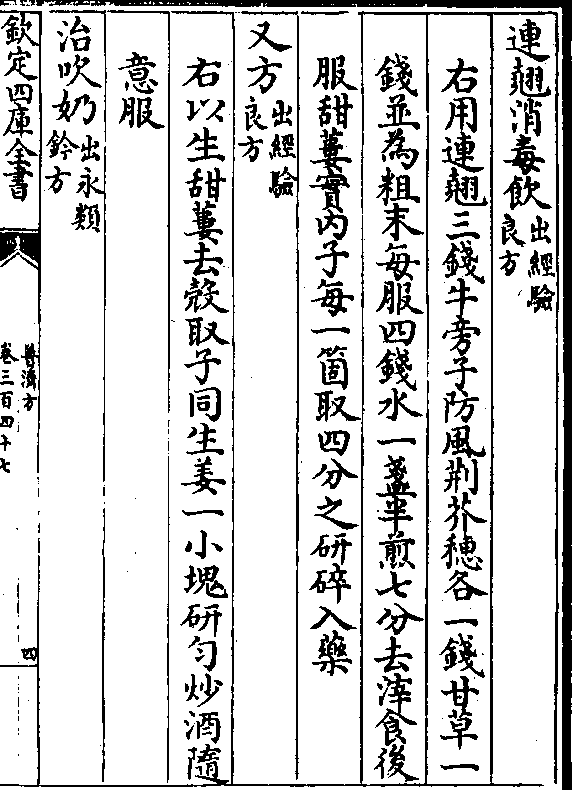 連翹消毒飲出經驗良方
右用連翹三錢牛旁子防風荆芥穗各一錢甘草一
錢並為粗末每服四錢水一盞半煎七分去滓食後
服甜蔞實内子每一箇取四分之研碎入藥
又方出經驗良方
右以生甜蔞去殻取子同生姜一小塊研匀炒酒隨
意服
治吹奶出永類鈐方
欽定四庫全書
普濟方
卷三百四十七
四